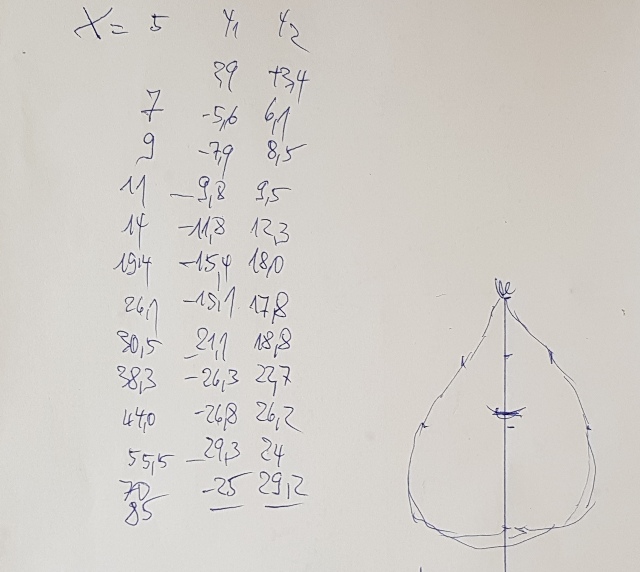 X = 5 Y1 Y2
3,9 +3,4
7 -5,6 6,1
9 -7,9 8,5
11 -9,8 9,5
14 -11,8 12,3
19,4 -15,4 18,0
26,1 -15,1 17,8
30,5 -21,1 18,8
38,3 -26,3 22,7
44,0 -26,8 26,2
55,5 -29,3 24
70 -25 29,2
85